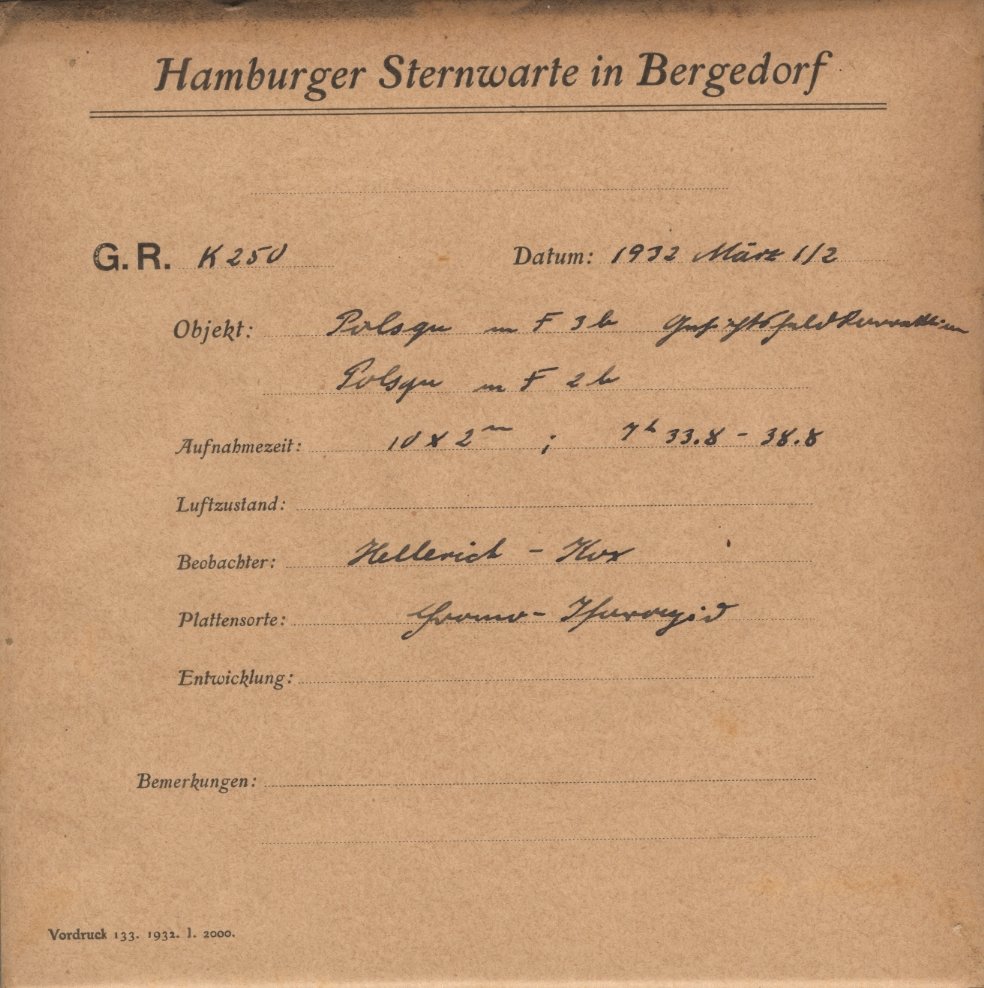 Hamburger Sternwarte in Bergedorf
G.R. K 250 Datum: 1932 März 1/2
Objekt: Polsqu m F 3 b Gesichtsfeldkorrektion
Polsqu m F 2 b
Aufnahmezeit: 10 x 2ᵐ ; 7ʰ 33.8 - 38.8
Luftzustand:
Beobachter: Hellerich - Kox
Plattensorte: Chromo-Isorapid
Entwicklung:
Bemerkungen:
Vordruck 133. 1932. I. 2000.